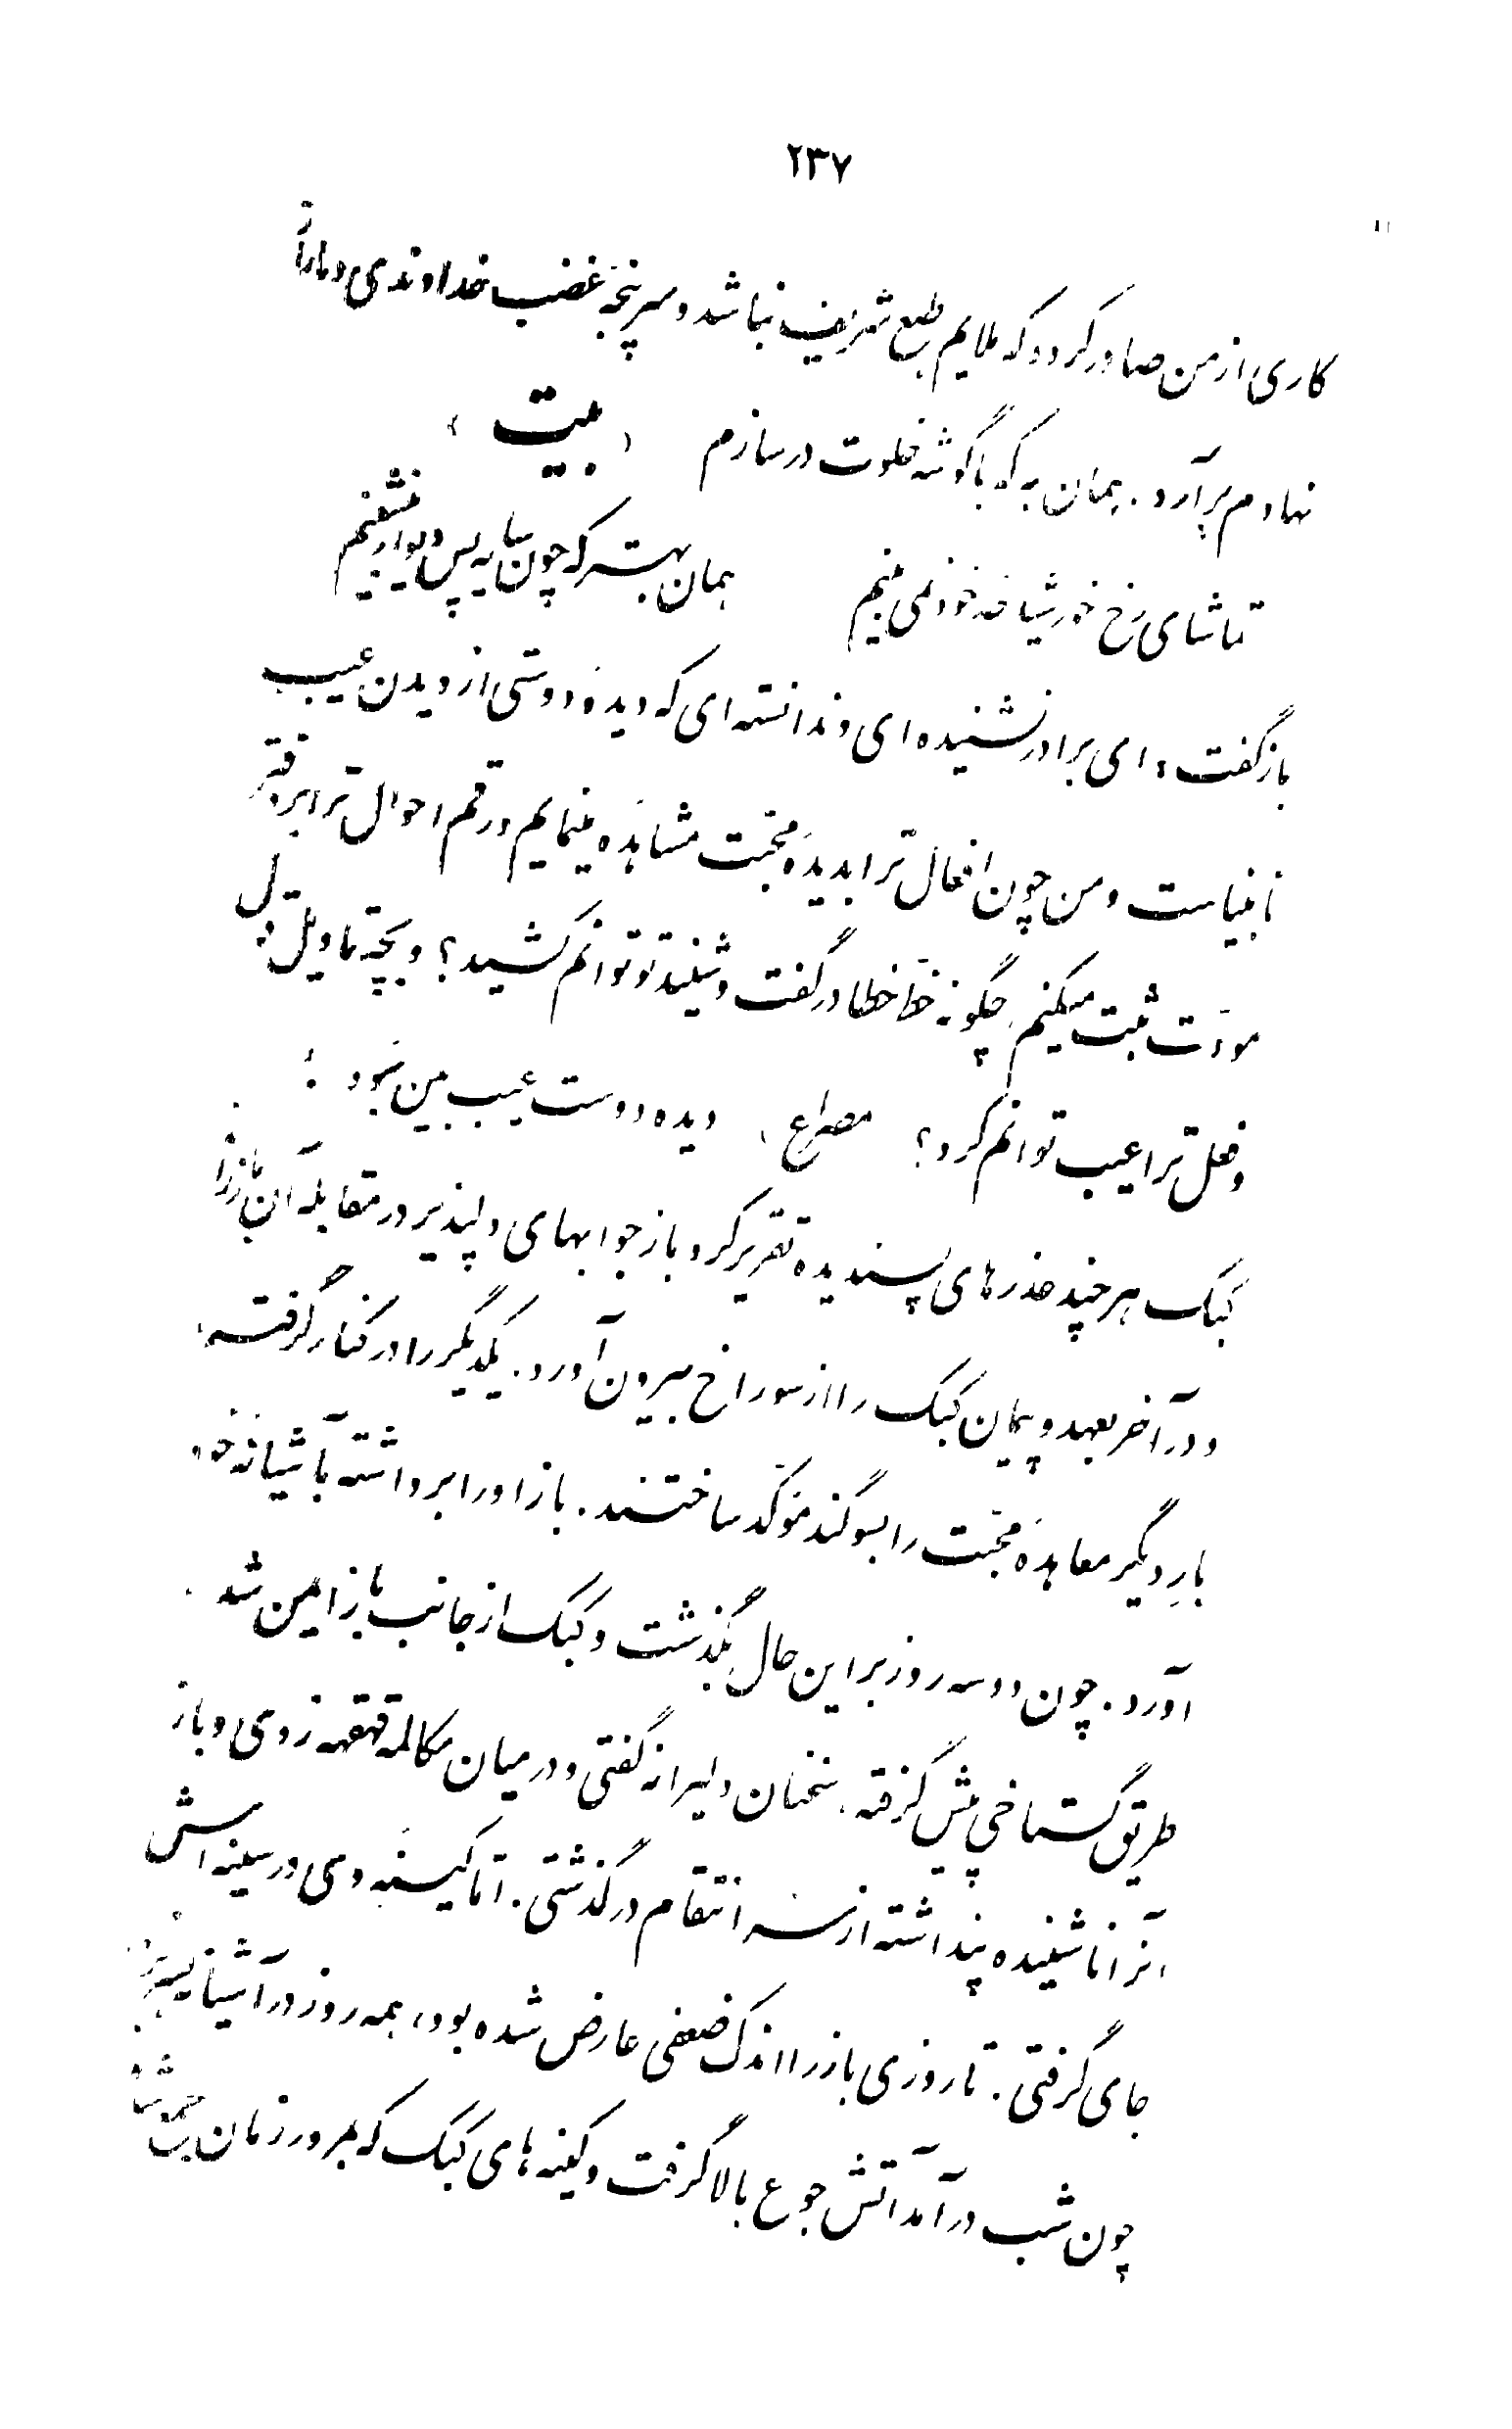 ۲۳۷
کاری از من صادر گردد که ملایم طبع شریف نباشد و سرپنجهٔ غضب خداوندی دمار از
نهادم برآرد. همان به که با گوشه خلوت درسازم
(بیت)
تماشای رخ خورشید خود نمی‌بینم
همان بهتر که چون سایه پس دیوار بنشینم
باز گفت: ای برادر نشنیده ای و ندانسته ای که دیدهٔ دوستی از دیدن عیب
نابیناست و من چون افعال ترا بدیدهٔ محبّت مشاهده مینمایم و رقم احوال ترا بر دفتر
مودّت ثبت میکنم، چگونه خطّ خطا در گفت و شنید تو توانم کشید؟ و بچه تاویل قول
و فعل ترا عیب توانم کرد؟ مصراع، دیده دوست عیب بین نبود:
کبک هر چند عذرهای پسندیده تقریر کرد باز جوابهای دلپذیر در مقابله آن باز راند
و در آخر بعهد و پیمان کبک را از سوراخ بیرون آورد. یکدیگر را در کنار گرفته،
بارِ دیگر معاهدهٔ محبّت را بسوگند مؤکّد ساختند. باز او را برداشته بآشیانه خود
آورد. چون دو سه روز بر این حال بگذشت و کبک از جانب باز ایمن شد.
طریق گستاخی پیش گرفته، سخنان دلیرانه گفتی و در میان مکالمه قهقهه زدی و باز
آنرا ناشنیده پنداشته از سر انتقام درگذشتی. امّا کینهٔ وی در سینه اش
جای گرفتی. تا روزی باز را اندک ضعفی عارض شده بود، همه روز در آشیانه بسر برد.
چون شب درآمد آتش جوع بالا گرفت و کینه های کبک که بمرور زمان جمع شده